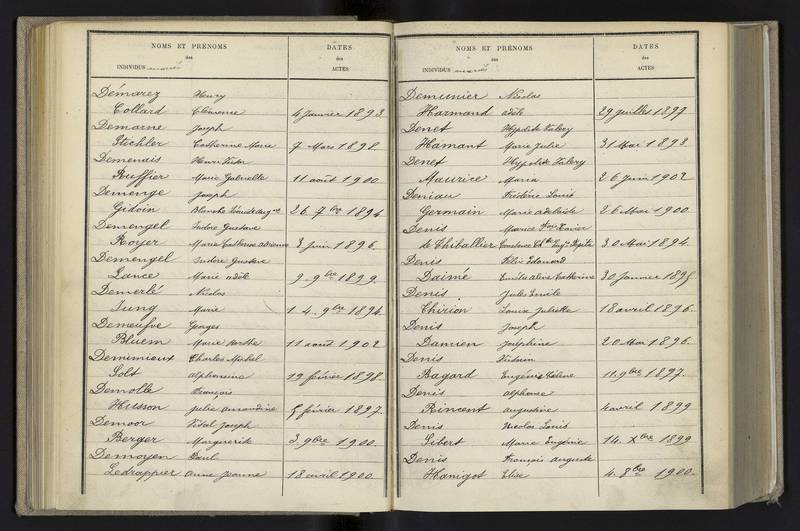 NOMS ET PRÉNOMS
des
INDIVIDUS mariés
DATES
des
ACTES
Démarez Henry
Collard Clémence 4 Janvier 1893
Demarne Joseph
Stichler Catherine Marie 7 Mars 1898.
Demenais Henri Victor
Ruffier Marie Gabrielle 11 août 1900
Demenge Joseph
Gidoin Blanche 26. 7bre 1894
Demengel Isidore Gustave
Royer Marie Catherine adrienne 3 Juin 1896.
Demengel Isidore Gustave
Lance Marie adèle 9. 9bre 1899.
Demerlé Nicolas
Jung Marie 1. 4. 9bre 1894.
Demeufve Georges
Bluem Marie Berthe 11 août 1902
Demimieux Charles Michel
Solt alphonsine 19 février 1898.
Demolle François
Husson Julie amandine 5 février 1897.
Demoor Vital Joseph
Berger Marguerite 3. 9bre 1900.
Demoyen Paul
Ledrappier anne Jeanne 18 avril 1900.
NOMS ET PRÉNOMS
des
INDIVIDUS mariés
DATES
des
ACTES
Demunier Nicolas
Harmand adèle 29 juillet 1899
Denet Hypolite Valery
Hamant Marie Julie 31 Mai 1893
Denet Hypolite Valery
Maurice Maria 26 Juin 1902
Deniau Frédéric Louis
Germain Marie adelaïde 26 Mai 1900.
Denis Marice Fois Xavier
de Chiballier Constance 30 Mai 1894.
Denis Félix Edouard
Daimé Emélie aline Catherine 30 Janvier 1895
Denis Jules Emile
Chirion Louise Juliette 18 avril 1896.
Denis Joseph
Damien Joséphine 20 Mai 1896.
Denis Victorin
Bagard Eugénie Céline 11. 9bre 1897.
Denis alphonse
Rincent augustine 4 avril 1899
Denis Nicolas Louis
Libert Marie Eugénie 14. Xbre 1899
Denis François auguste
Hanigot Elise 4. 8bre 1900.